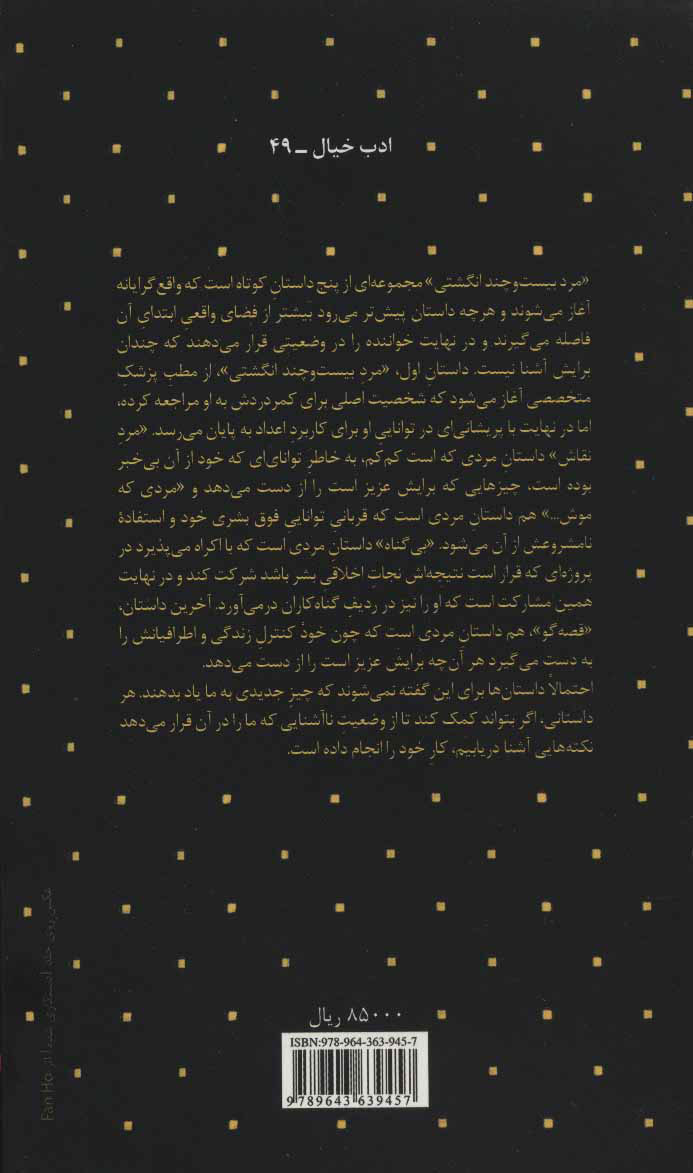 ادب خیال ـ ۴۹
«مرد بیست‌وچند انگشتی» مجموعه‌ای از پنج داستانِ کوتاه است که واقع‌گرایانه
آغاز می‌شوند و هرچه داستان پیش‌تر می‌رود بیشتر از فضای واقعیِ ابتدای آن
فاصله می‌گیرند و در نهایت خواننده را در وضعیتی قرار می‌دهند که چندان
برایش آشنا نیست. داستانِ اول، «مردِ بیست‌وچند انگشتی»، از مطبِ پزشکِ
متخصصی آغاز می‌شود که شخصیت اصلی برای کمردردش به او مراجعه کرده،
اما در نهایت با پریشانی‌ای در تواناییِ او برای کاربردِ اعداد به پایان می‌رسد. «مردِ
نقاش» داستانِ مردی که است کم‌کم، به خاطرِ توانای‌ای که خود از آن بی‌خبر
بوده است، چیزهایی که برایش عزیز است را از دست می‌دهد و «مردی که
موش...» هم داستانِ مردی است که قربانیِ تواناییِ فوق بشری خود و استفادهٔ
نامشروعش از آن می‌شود. «بی‌گناه» داستانِ مردی است که با اکراه می‌پذیرد در
پروژه‌ای که قرار است نتیجه‌اش نجاتِ اخلاقیِ بشر باشد شرکت کند و در نهایت
همین مشارکت است که او را نیز در ردیفِ گناه‌کاران درمی‌آورد. آخرین داستان،
«قصه‌گو»، هم داستانِ مردی است که چون خودْ کنترلِ زندگی و اطرافیانش را
به دست می‌گیرد هر آن‌چه برایش عزیز است را از دست می‌دهد.
احتمالاً داستان‌ها برای این گفته نمی‌شوند که چیزِ جدیدی به ما یاد بدهند. هر
داستانی، اگر بتواند کمک کند تا از وضعیتِ ناآشنایی که ما را در آن قرار می‌دهد
نکته‌هایی آشنا دریابیم، کارِ خود را انجام داده است.
عکس روی جلد (دستکاری شده) از: Fan Ho
۸۵۰۰۰ ریال
ISBN:978-964-363-945-7
9 789643 639457